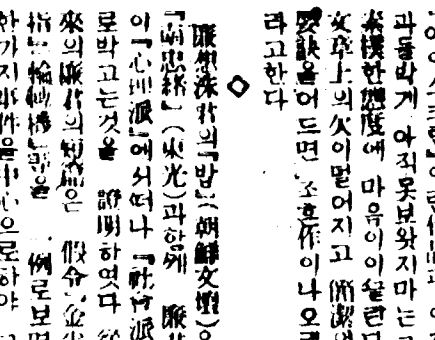 과들박게 아직못보왓지마는
素樸한態度에 마음이이끌린다
文章上의欠이멀어지고 簡潔
要訣을어드면 조흔作이나오리
라고한다
◇
廉想涉君의「밥」(朝鮮文壇)은
「南忠緖」(東光)과함께 廉君
이「心理派」에서떠나「社會派
로박고는것을 證明하엿다
來의廉君의短篇은 假令「金半
指」「輪轉機」等을 例로보면
한가지事件을中心으로하야